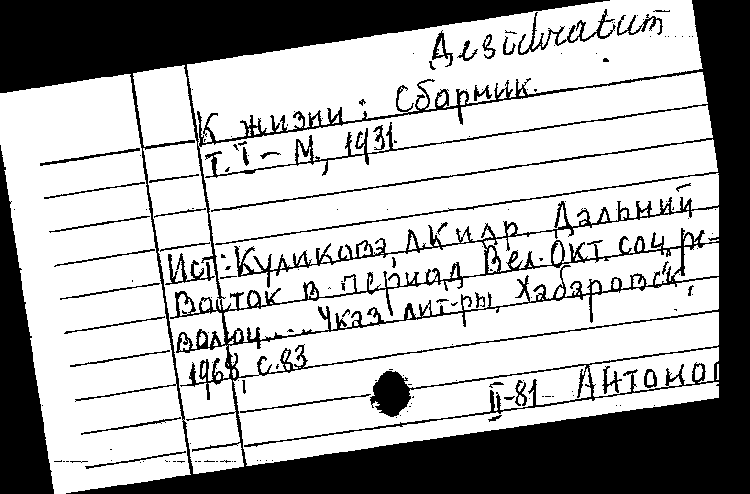 Desideratum
К жизни: Сборник.
т. I – М, 1931
Ист: Куликова, Л.К и др. Дальний
Восток в период Вел. Окт. соц. ре-
волюц..... Указ лит-ры, Хабаровск,
1968, с. 83
II-81 Антоно